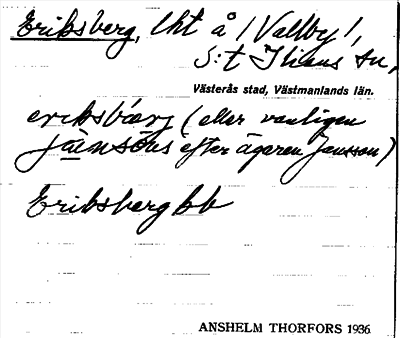 Eriksberg, lht å /Vallby/,
S:t Ilians sn,
Västerås stad, Västmanlands län.
eriksbærj (eller vanligen
jaǹsóns efter ägaren Jansson)
Eriksberg bb
ANSHELM THORFORS 1936